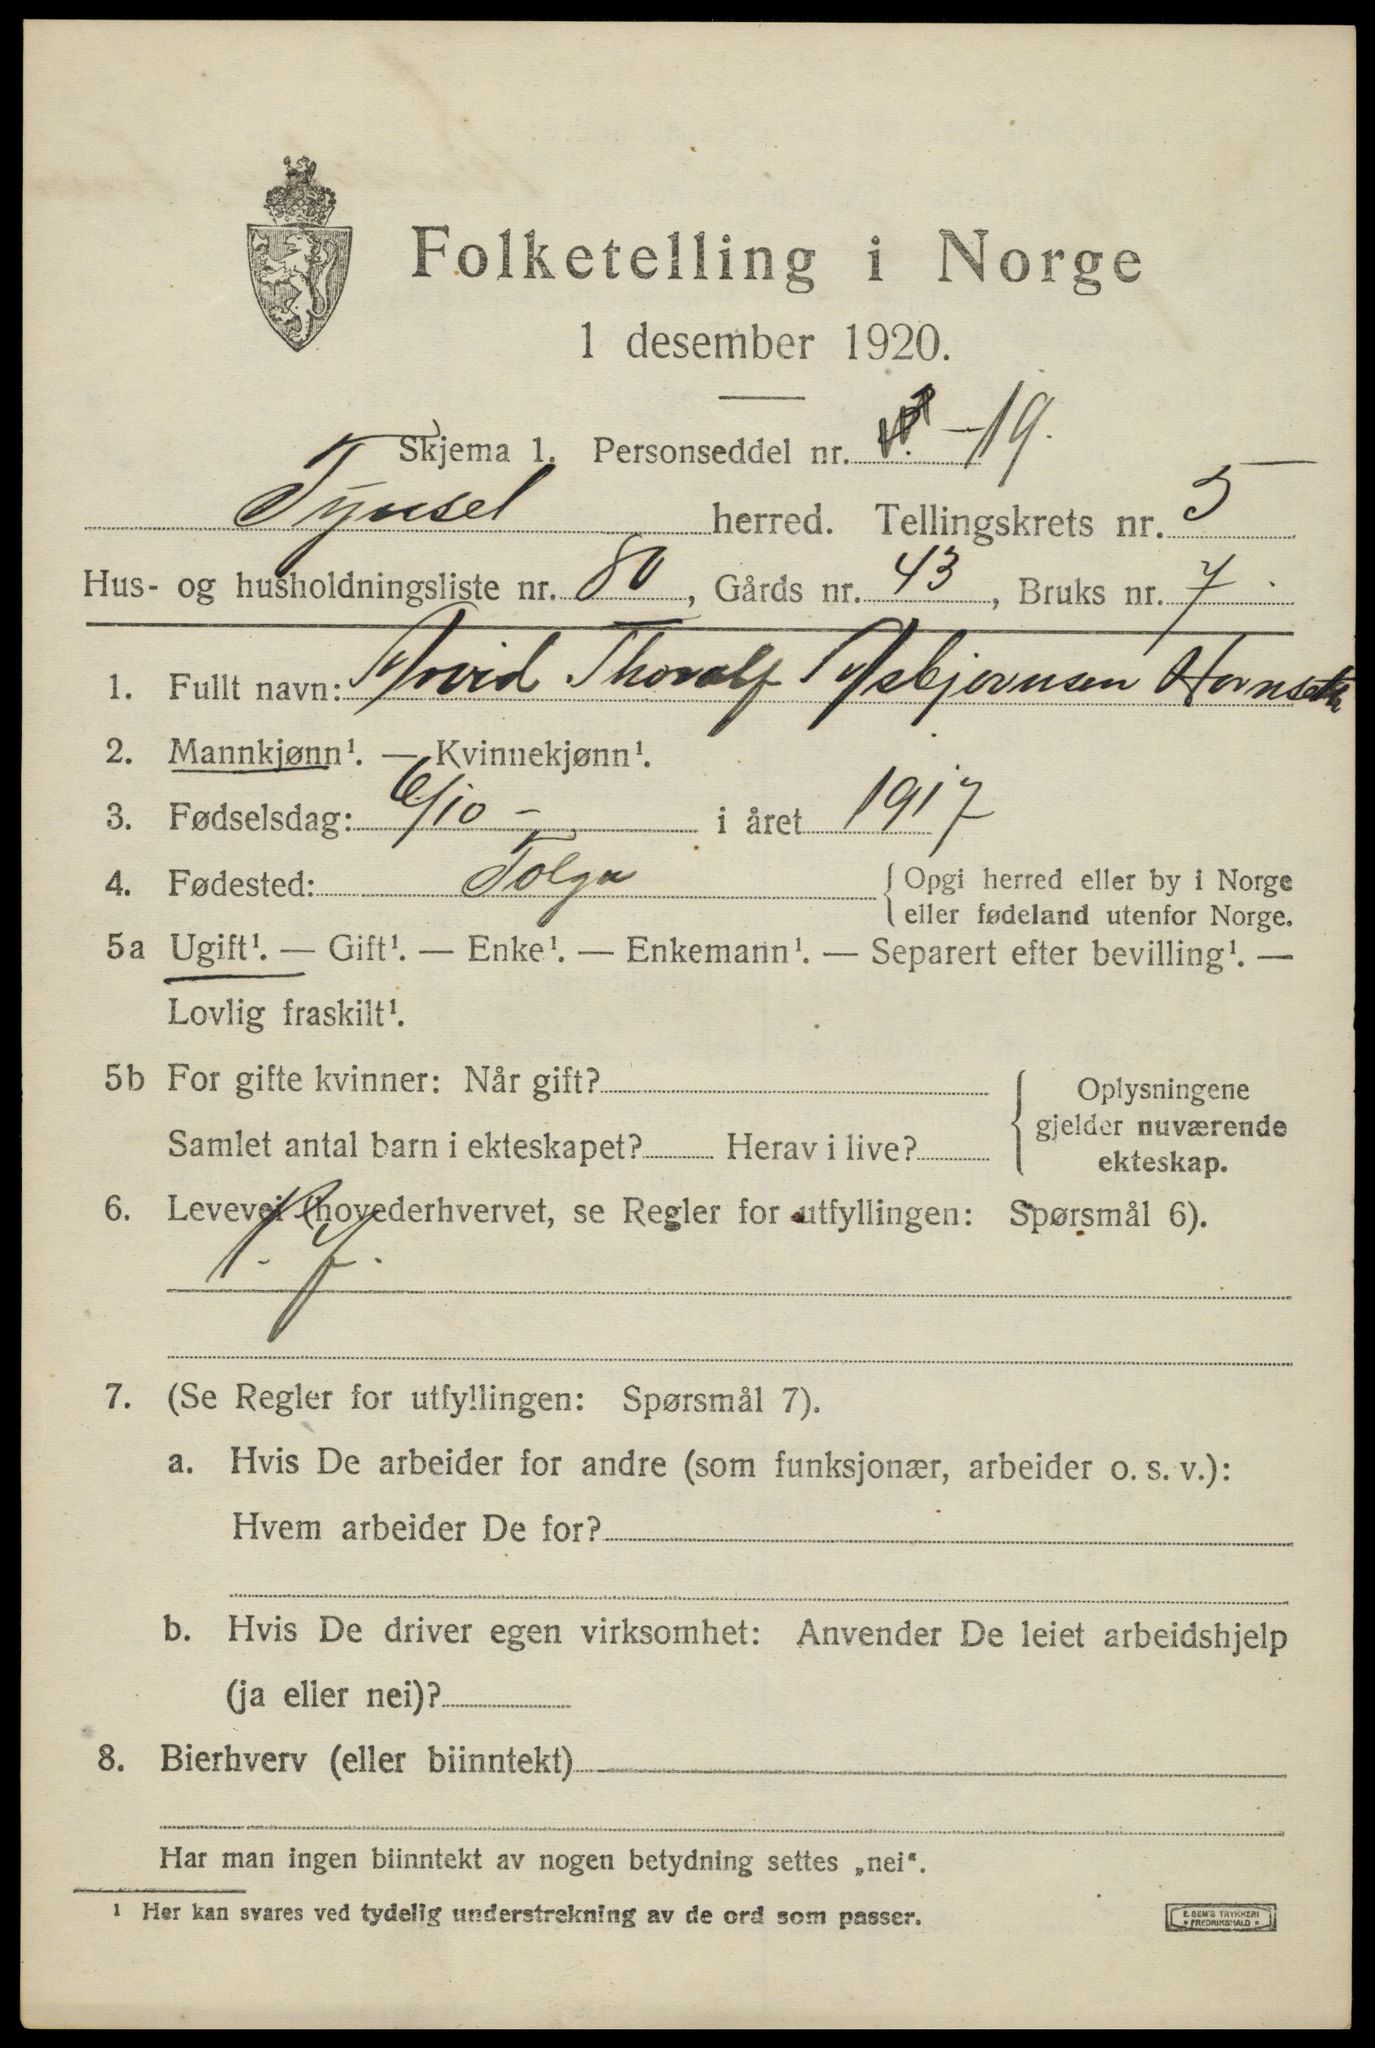 Folketelling i Norge
1 desember 1920.
Skjema 1. Personseddel nr. — 19.
Tynset herred. Tellingskrets nr. 5
Hus- og husholdningsliste nr. 80, Gårds nr. 43, Bruks nr. 7
1. Fullt navn: Arvid Thoralf Asbjørnsen Hornseth
2. Mannkjønn¹. — Kvinnekjønn¹.
3. Fødselsdag: 6/10 - i året 1917
4. Fødested: Tolga { Opgi herred eller by i Norge
eller fødeland utenfor Norge.
5a Ugift¹. — Gift¹. — Enke¹. — Enkemann¹. — Separert efter bevilling¹. —
Lovlig fraskilt¹.
5b For gifte kvinner: Når gift? { Oplysningene
gjelder nuværende
Samlet antal barn i ekteskapet? Herav i live?
ekteskap.
6. Levevei (hovederhvervet, se Regler for utfyllingen: Spørsmål 6).
7. (Se Regler for utfyllingen: Spørsmål 7).
a. Hvis De arbeider for andre (som funksjonær, arbeider o. s. v.):
Hvem arbeider De for?
b. Hvis De driver egen virksomhet: Anvender De leiet arbeidshjelp
(ja eller nei)?
8. Bierhverv (eller biinntekt)
Har man ingen biinntekt av nogen betydning settes „nei“.
¹ Her kan svares ved tydelig understrekning av de ord som passer.
E. SEM'S TRYKKERI
FREDRIKSHALD